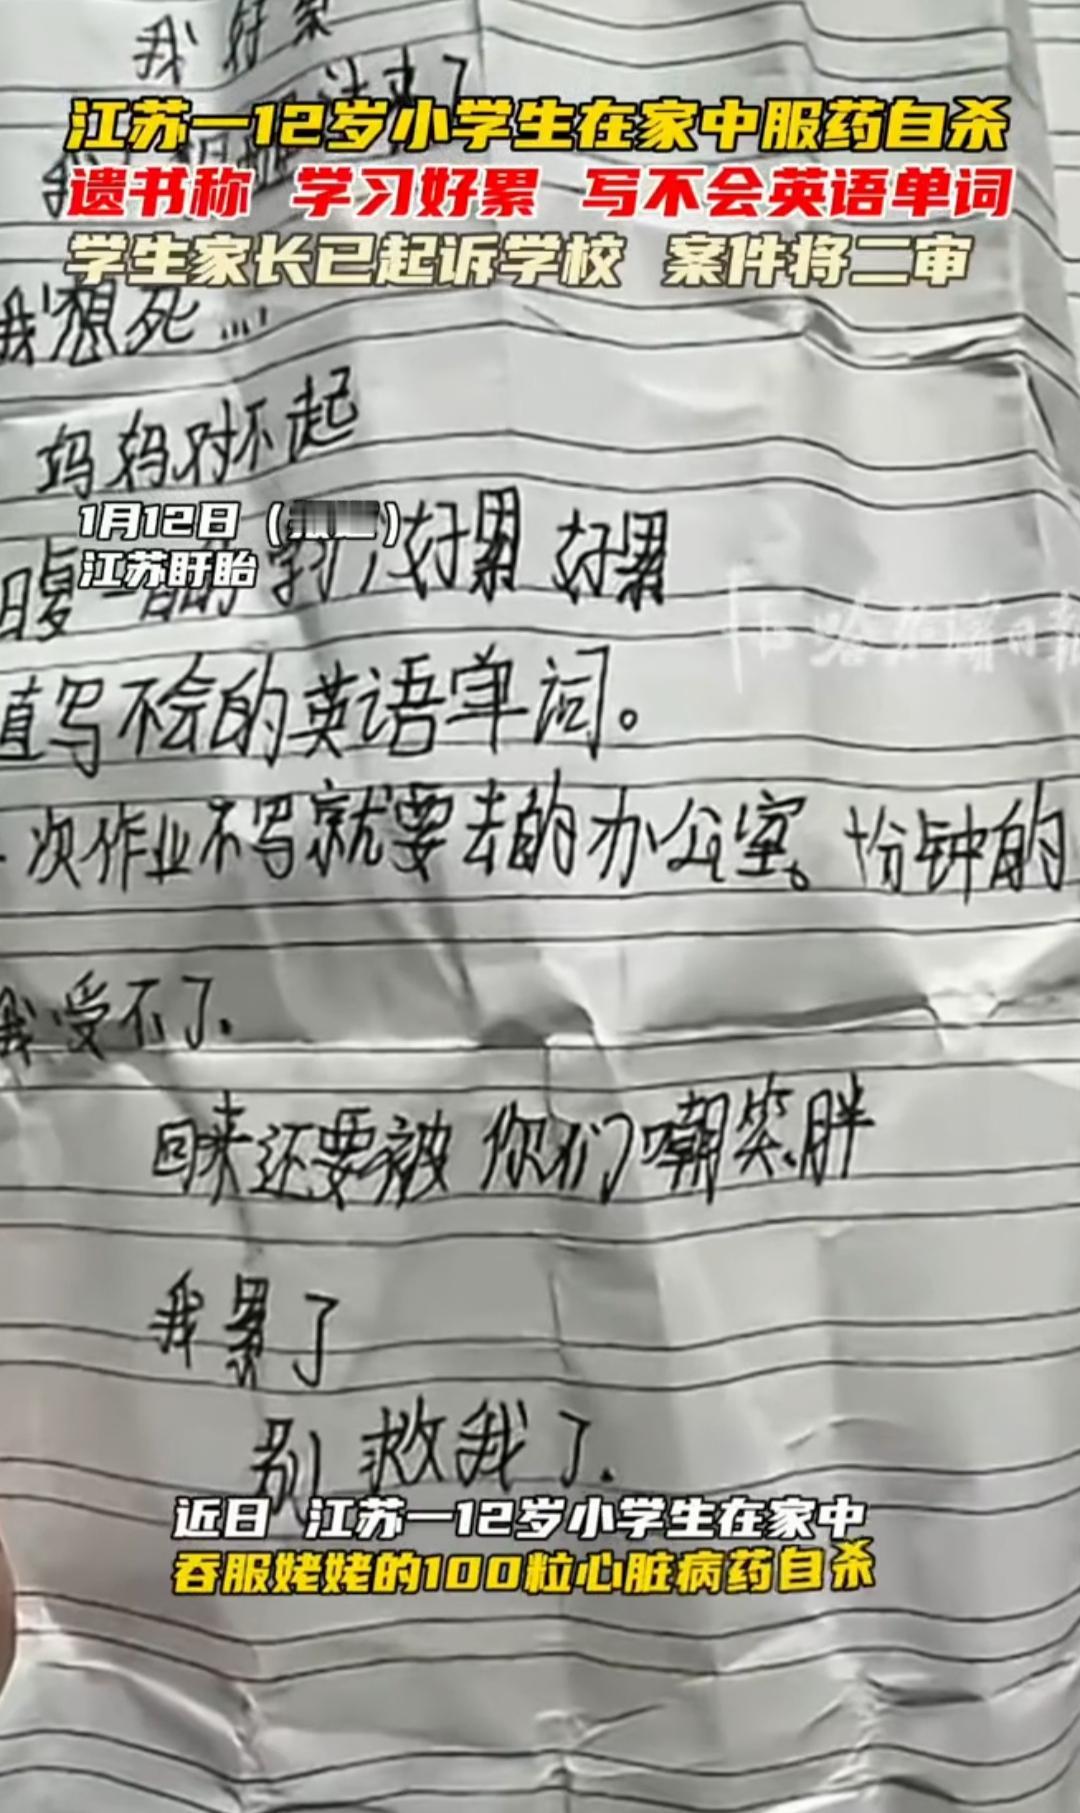 我好累
江苏一12岁小学生在家中服药自杀
遗书称 学习好累 写不会英语单词
学生家长已起诉学校 案件将二审
我想死...
妈妈对不起
1月12日
江苏盱眙
好累 好累
直写不会的英语单词。
次作业不写就要去的办公室。十分钟的
我受不了.
回来还要被你们嘲笑胖
我累了
别救我了.
近日 江苏一12岁小学生在家中
吞服姥姥的100粒心脏病药自杀